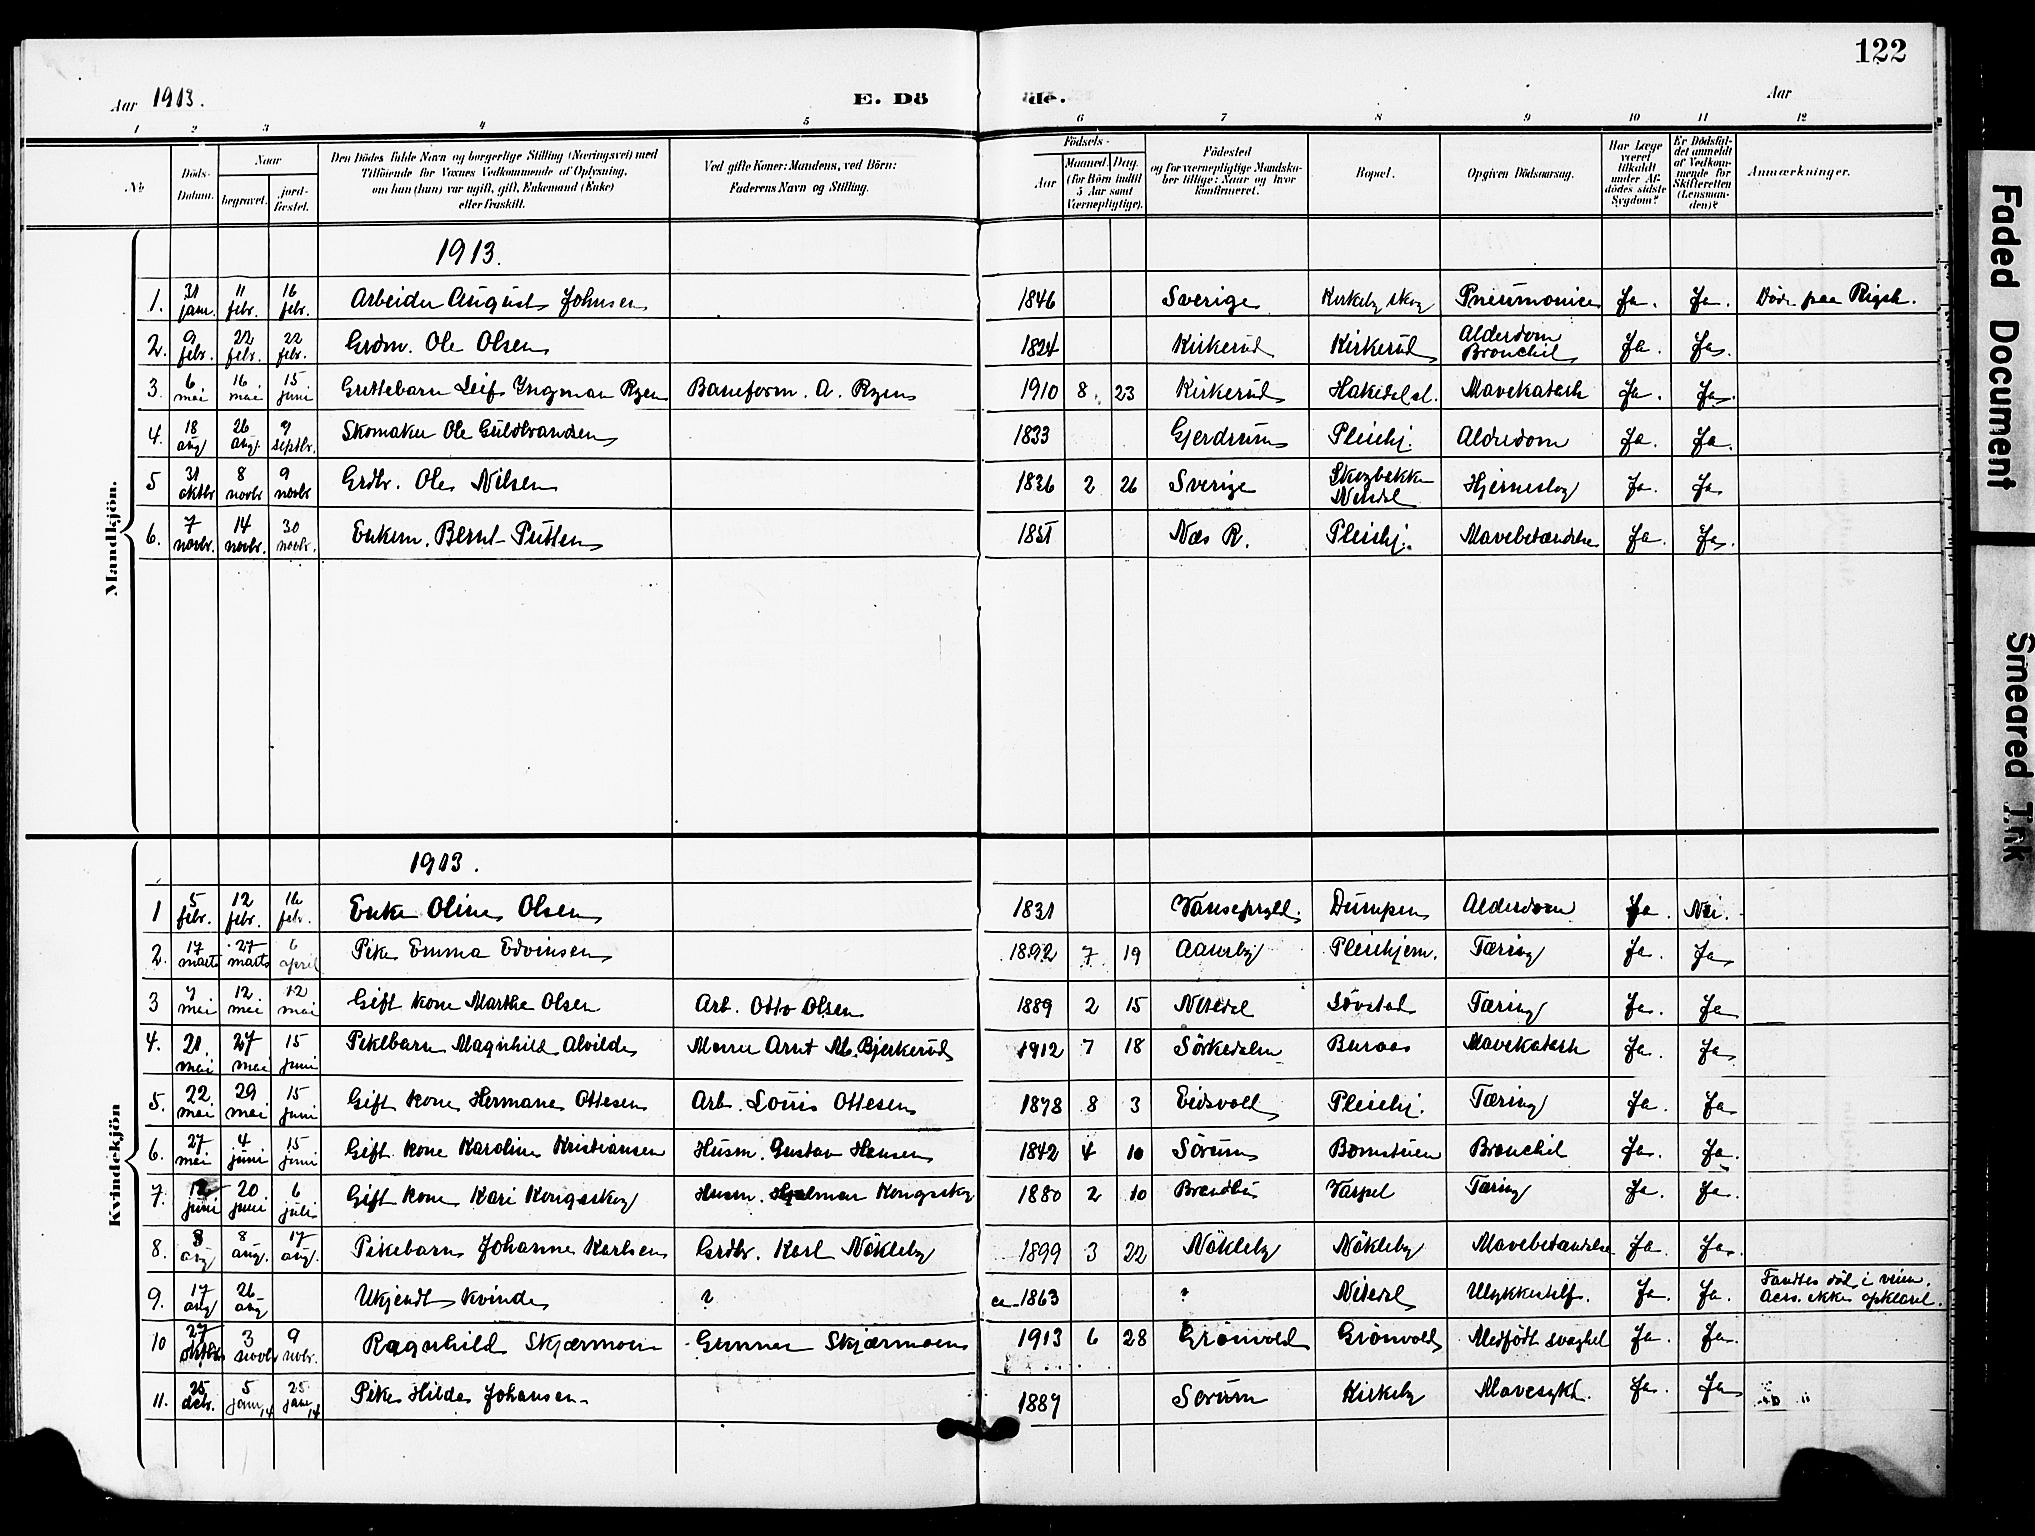 122
Aar 1913.
E. Döde.
Aar
1 2 3 4 5 6 7 8 9 10 11 12
No
Döds-Datum.
Naar
begravet.
jordfæstet.
Den Dödes fulde Navn og borgerlige Stilling (Næringsvei) med Tilföiende for Voxnes Vedkommende af Oplysning, om han (hun) var ugift, gift, Enkemand (Enke) eller fraskilt.
Ved gifte Koner: Mandens, ved Börn: Faderens Navn og Stilling.
Födsels-
Aar
Maaned. Dag.
(for Börn indtil 5 Aar samt Værnepligtige).
Födested og for værnepligtige Mandskaber tillige: Naar og hvor konfirmeret.
Bopæl.
Opgiven Dödsaarsag.
Har Læge været tilkaldt under Afdödes sidste Sygdom?
Er Dödsfaldet anmeldt af Vedkommende for Skifteretten (Lensmanden)?
Anmærkninger.
Mandkjön.
1913.
1. 31 jan. 11 febr. 16 febr. Arbeider August Johnsen 1846 Sverige Kirkeby skog Pneumonica Ja. Ja. Döde paa Rigsh.
2. 9 febr. 22 febr. 22 febr. Grdm. Ole Olsen 1824 Kirkerud Kirkerud Alderdom Bronchit Ja. Ja.
3. 6 mai 16 mai 15 juni Guttebarn Leif Ingman Ryen Baneform. A. Ryen 1910 8. 23 Kirkerud Hakedal st. Mavekatarh Ja. Ja.
4. 18 aug 26 aug. 9 septbr. Skomaker Ole Guldbrandsen 1833 Gjerdrum Pleiehj. Alderdom Ja. Ja.
5 31 oktbr 8 novbr 9 novbr Grdbr. Ole Nilsen 1836 2 26 Sverige Skogbakken Nitedal Hjerneslag Ja. Ja
6. 7 novbr. 14 novbr. 30 novbr. Enkem. Bernt Putten Næs R. Pleiehj. Mavebetændelse Ja. Ja.
Kvindekjön
1913.
1 5 febr. 12 febr. 16 febr. Enke Oline Olsen 1831 Dumpen Alderdom Ja. Nei.
2. 17 marts 27 marts 6 april Pike Emma Edvinsen 1892 7 19 Aanebyi Pleiehjem. Tæring Ja. Ja
3 7 mai 12 mai 12 mai Gift kone Marthe Olsen Arb. Otto Olsen 1889 2 15 Nitedal Lövstad Tæring Ja. Ja
4. 21. mai 27 mai 15 juni Pikebarn Magnhild Alvilde Murer Arnt M. Bjerkerud 1912 7 18 Sörkedalen Buraas Mavekatarh Ja. Ja
5. 22 mai 29 mai 15 juni Gift kone Hermane Ottesen Arb. Louis Ottesen 1878 8 3 Eidsvold Pleiehj. Tæring Ja. Ja
6. 27 mai 4 juni 15 juni Gift kone Karoline Kristiansen Husm. Gustav Hansen 1842 4 10 Sörum Bomstuen Bronchit Ja. Ja.
7. 12 juni 20 juni 6 juli Gift kone Kari Kongsskog Husm. Hjalmar Kongsskog 1880 2 10 Brandbu Varpet Tæring Ja. Ja.
8. 3 aug 8 aug. 17 aug. Pikebarn Johanne Karlsen Grdbr. Karl Nökleby 1899 3 22 Nökleby Nökleby Mavebetændelse Ja. Ja.
9. 17 aug 26 aug Ukjendt Kvinde ? ca 1863 Nitedal Ulykkestilf. Ja. Ja. Fandtes död i veien. Aars. ikke opklaret.
10 27 oktbr 3 novbr 9 nvbr. Ragnhild Skjærmoen Gunnar Skjærmoen 1913 6 28 Grönvold Grönvold Medfödt svaghet Ja. Ja.
11. 25 debr. 5 jan 14 25 jan 14 Pike Hilda Johansen 1889 Sorum Kirkeby Mavesykd. Ja. Ja
Faded Document
Smeared Ink